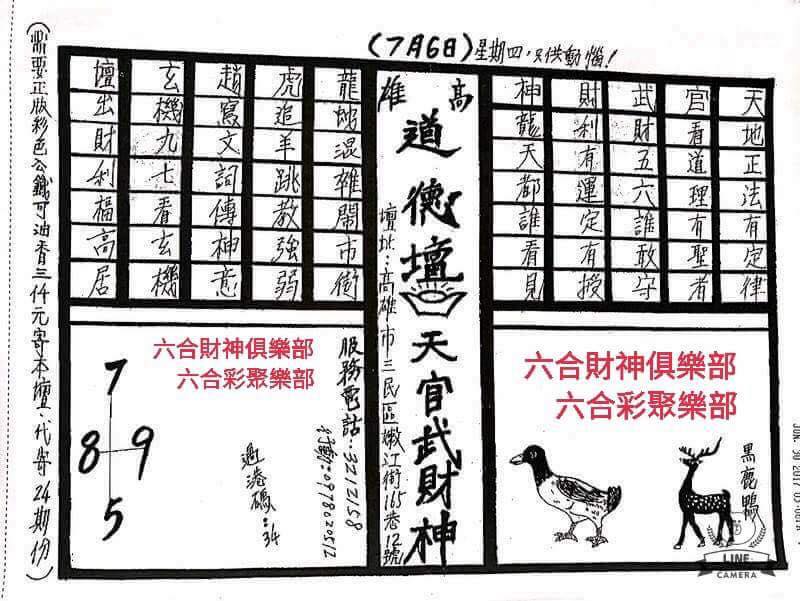 (7月6日)星期四,只供動惱!
天地正法有定律
官看道理有聖者
武財五六誰敢守
財利有運定有授
神龍天都誰看見
高雄
道德壇 天官武財神
壇址:高雄市三民區嫩江街165巷12號
龍蛇混雜鬧市街
虎追羊跳教強弱
趙寫文詞傳神意
玄機九七看玄機
壇出財利福高居
六合財神俱樂部
六合彩聚樂部
黑鹿鴨
服務電話:3212158
行動:0978020512
六合財神俱樂部
六合彩聚樂部
過港碼:34
7
8 9
5
(需要正版彩色公籤可油香三仟元寄本壇·代寄24期份)
JUN 30 2017
LINE
CAMERA